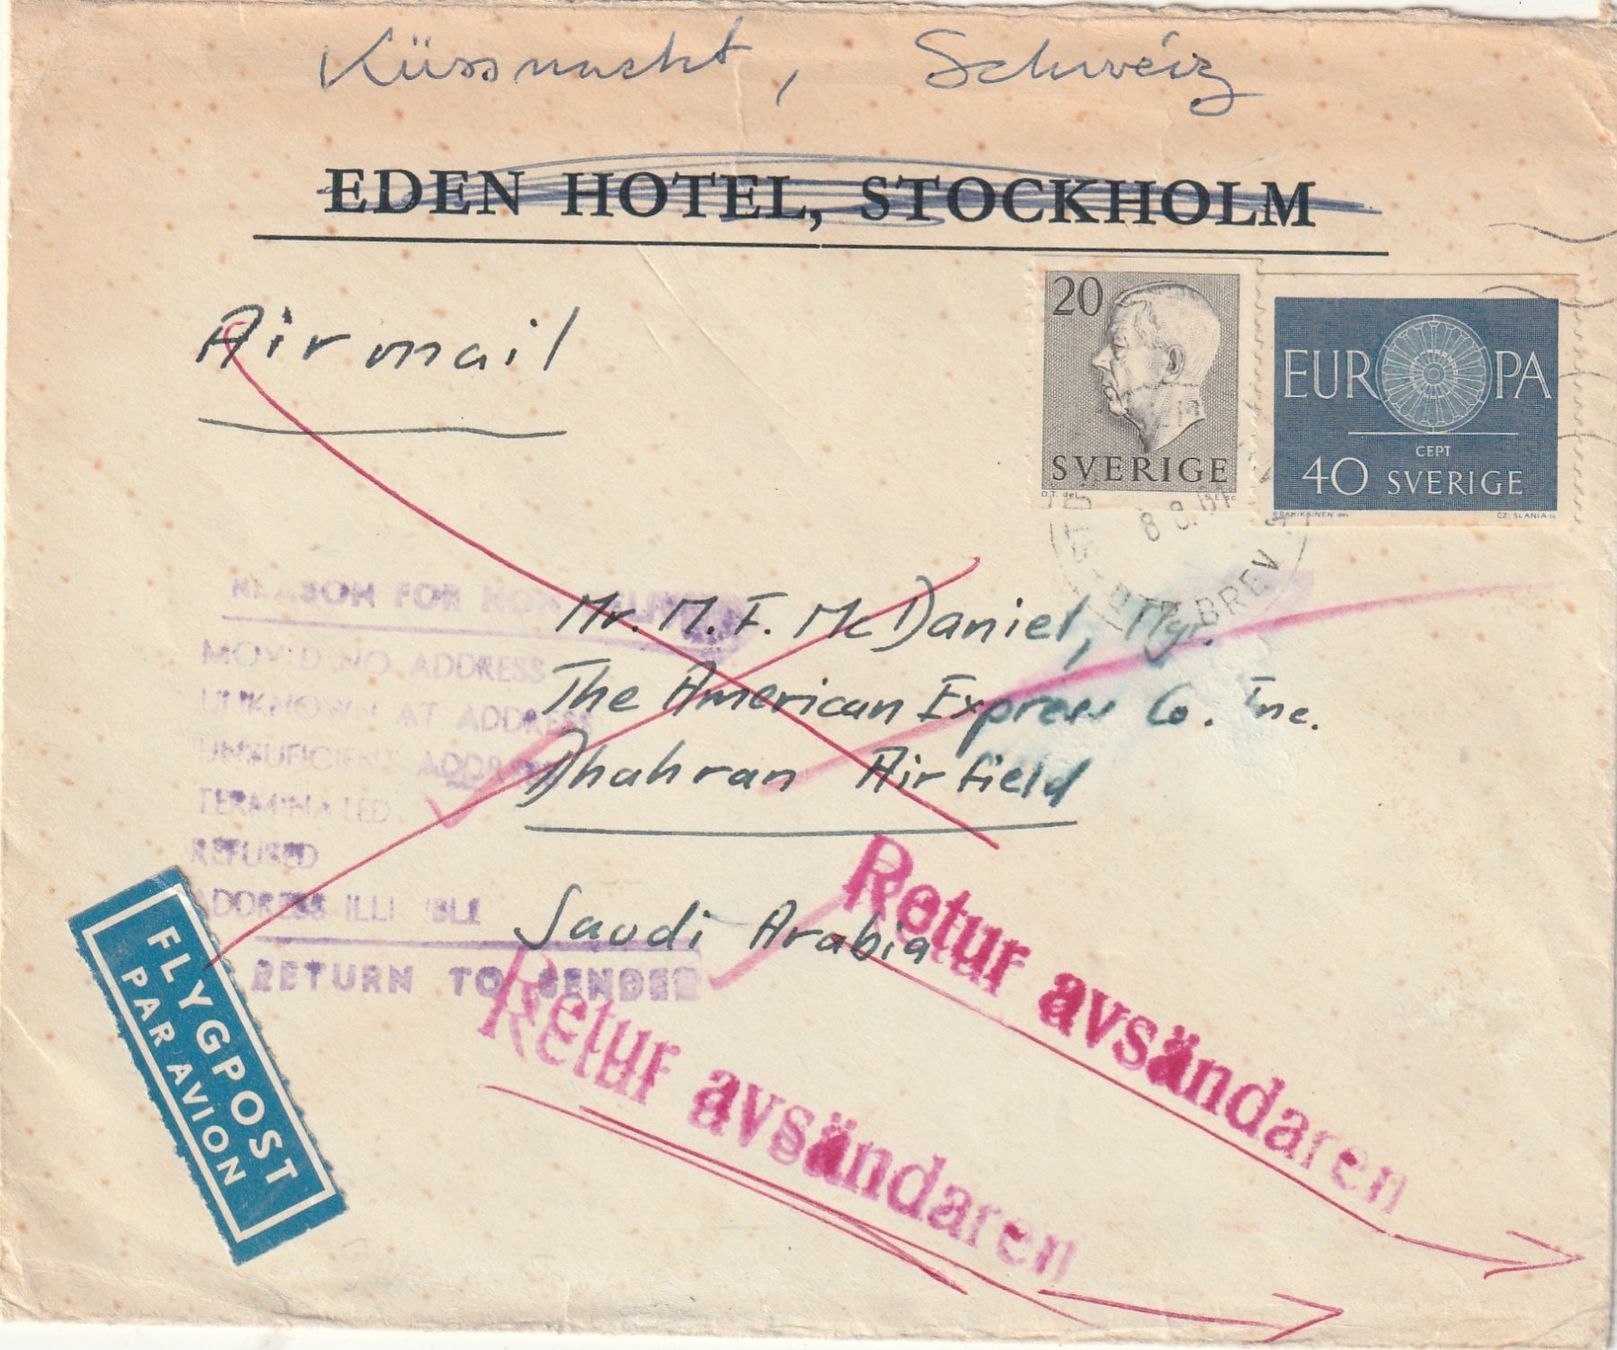 Küssnacht, Schweiz
EDEN HOTEL, STOCKHOLM
Airmail
20
SVERIGE
EUROPA
CEPT
40 SVERIGE
CZ. SLANIA
BREV
REASON FOR
MOVED NO ADDRESS
UNKNOWN AT ADDRESS
TERMINATED
REFUSED
ADDRESS
RETURN TO SENDER
Mr. M. F. McDaniel, Mgr.
The American Express Co. Inc.
Dhahran Airfield
Saudi Arabia
FLYGPOST
PAR AVION
Retur avsändaren
Retur avsändaren